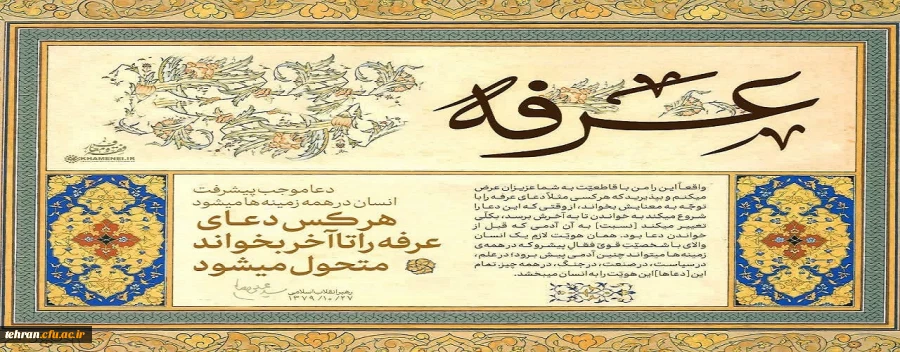 عرفه
KHAMENEI.IR
واقعاً این را من با قاطعیّت به شما عزیزان عرض
میکنم و بپذیرید که هر کسی مثلاً دعای عرفه را با
توجّه به معنایش بخواند، از وقتی که این دعا را
شروع میکند به خواندن تا به آخرش برسد، بکلّی
تغییر میکند [نسبت] به آن آدمی که قبل از
خواندن دعا بود. همان هویّت لازم یک انسان
والای با شخصیّت قویّ فعّال پیشرو که در همه‌ی
زمینه‌ها میتواند چنین آدمی پیش برود؛ در علم،
در سیاست، در صنعت، در جنگ، در همه چیز. تمام
این [دعاها] این هویّت را به انسان میبخشد.
دعا موجب پیشرفت
انسان در همه زمینه‌ها میشود
هر کس دعای
عرفه را تا آخر بخواند
متحول میشود
رهبر انقلاب اسلامی
۱۳۷۹/۱۰/۲۷
tehran.cfu.ac.ir